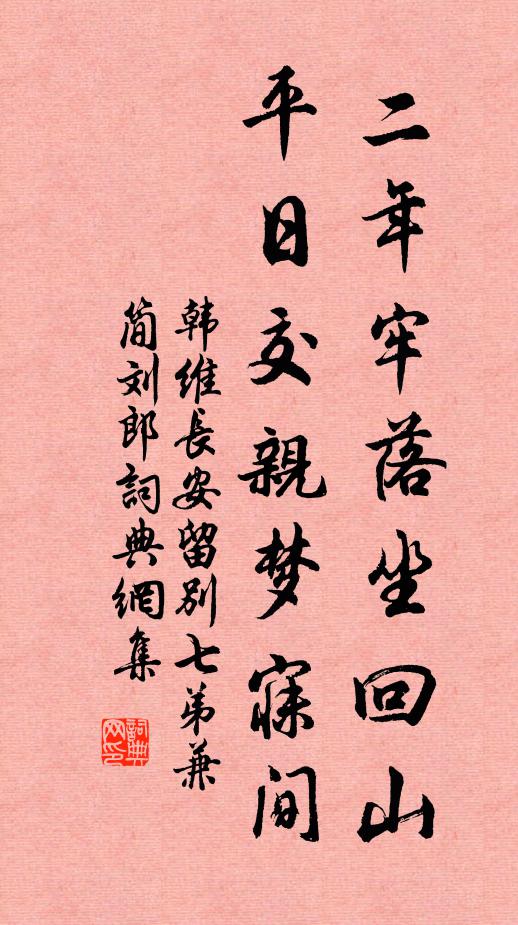 二年牢落坐回山
平日交親梦寐间
韩维長安留别七弟兼
简刘郎詞典網集
詞典
网印